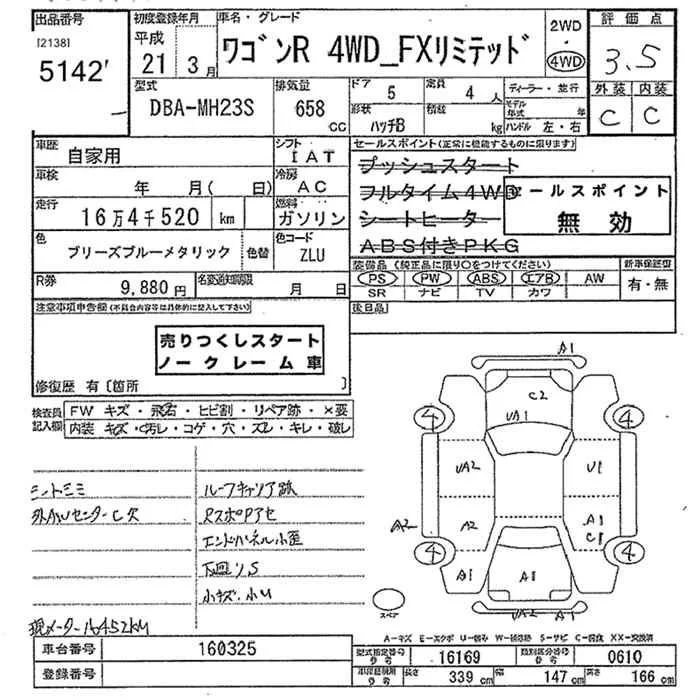 出品番号 初度登録年月 車名・グレード 2WD 評価点
[2138] 平成 ・
5142 21 3月 ワゴンR 4WD_FXリミテッド 4WD 3.5
型式 排気量 ドア 5 定員 4人 ディーラー・並行 外装 内装
DBA-MH23S 658 CC 形状 ハッチB 積載 kg モデル年式 年 C C
ハンドル 左・右
車歴 自家用 シフト IAT セールスポイント(正常に機能するものに限ります)
車検 年 月( 日) 冷房 AC プッシュスタート
走行 16万4千520 km 燃料 ガソリン フルタイム4WD セールスポイント
シートヒーター 無効
色 ブリーズブルーメタリック 色替 色コード ZLU ABS付きPKG
R券 9,880円 名変通知期限 月 日 装備品(純正品に限り○をつけてください) 新車保証書
PS PW ABS エアB AW 有・無
SR ナビ TV カワ
注意事項申告欄(不具合内容等は具体的に記入して下さい) 後日品
売りつくしスタート
ノークレーム車
修復歴 有〔箇所 〕
検査員 FW キズ・飛石・ヒビ割・リペア跡・×要
記入欄 内装 キズ・汚レ・コゲ・穴・ズレ・キレ・破レ
A1
C2
UA1
4 4
UA2 U1
A2 A2 A1
C1
4 4
A1 A1
UA2 A1
スペア
シントミミ ルーフキャリア跡
外AWセンターC欠 RスポPアセ
エンドパネル小歪
下回りS
小キズ.小U
現メーター16452KM
A－キズ E－エクボ U－凹み W－補修跡 S－サビ C－腐食 XX－交換済
車台番号 160325 型式指定番号 16169 類別区分番号 0610
登録番号 長さ 339 cm 幅 147 cm 高さ 166 cm